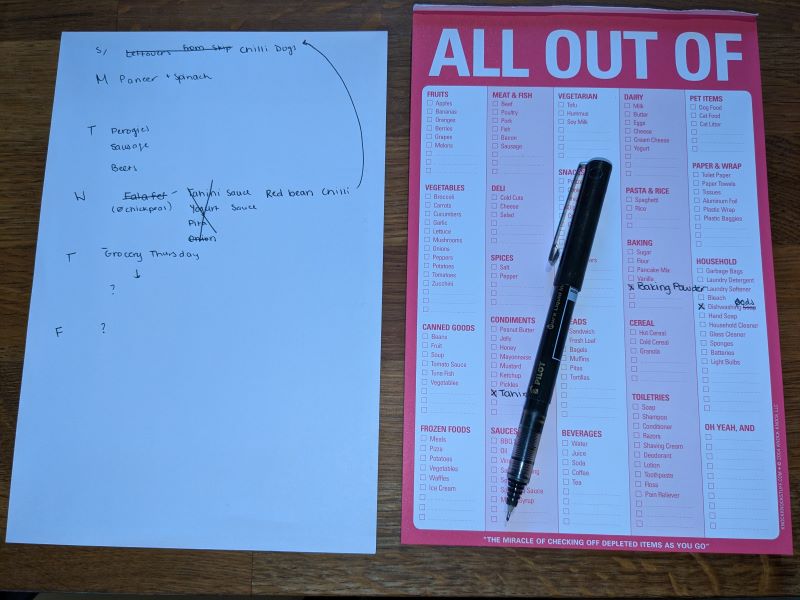 S/ Leftovers from Skip Chilli Dogs
M Paneer + Spinach
T Perogies
Sausage
Beets
W Falafel - Tahini Sauce Red bean Chilli
(@chickpeas) Yogurt Sauce
Pita
Onion
T Grocery Thursday
?
F ?
ALL OUT OF
FRUITS
Apples
Bananas
Oranges
Berries
Grapes
Melons
VEGETABLES
Broccoli
Carrots
Cucumbers
Garlic
Lettuce
Mushrooms
Onions
Peppers
Potatoes
Tomatoes
Zucchini
CANNED GOODS
Beans
Fruit
Soup
Tomato Sauce
Tuna Fish
Vegetables
FROZEN FOODS
Meals
Pizza
Potatoes
Vegetables
Waffles
Ice Cream
MEAT & FISH
Beef
Poultry
Pork
Fish
Bacon
Sausage
DELI
Cold Cuts
Cheese
Salad
SPICES
Salt
Pepper
CONDIMENTS
Peanut Butter
Jelly
Honey
Mayonnaise
Mustard
Ketchup
Pickles
x Tahini
SAUCES
BBQ
Oil
Sauce
Syrup
VEGETARIAN
Tofu
Hummus
Soy Milk
SNACKS
Sandwich
Fresh Loaf
Bagels
Muffins
Pitas
Tortillas
BEVERAGES
Water
Juice
Soda
Coffee
Tea
DAIRY
Milk
Butter
Eggs
Cheese
Cream Cheese
Yogurt
PASTA & RICE
Spaghetti
Rice
BAKING
Sugar
Flour
Pancake Mix
Vanilla
x Baking Powder
CEREAL
Hot Cereal
Cold Cereal
Granola
TOILETRIES
Soap
Shampoo
Conditioner
Razors
Shaving Cream
Deodorant
Lotion
Toothpaste
Floss
Pain Reliever
PET ITEMS
Dog Food
Cat Food
Cat Litter
PAPER & WRAP
Toilet Paper
Paper Towels
Tissues
Aluminum Foil
Plastic Wrap
Plastic Baggies
HOUSEHOLD
Garbage Bags
Laundry Detergent
Laundry Softener
Bleach
x Dishwashing Soap pods
Hand Soap
Household Cleaner
Glass Cleaner
Sponges
Batteries
Light Bulbs
OH YEAH, AND
PILOT
"THE MIRACLE OF CHECKING OFF DEPLETED ITEMS AS YOU GO"
KNOCKKNOCKSTUFF.COM © 2004 KNOCK KNOCK LLC